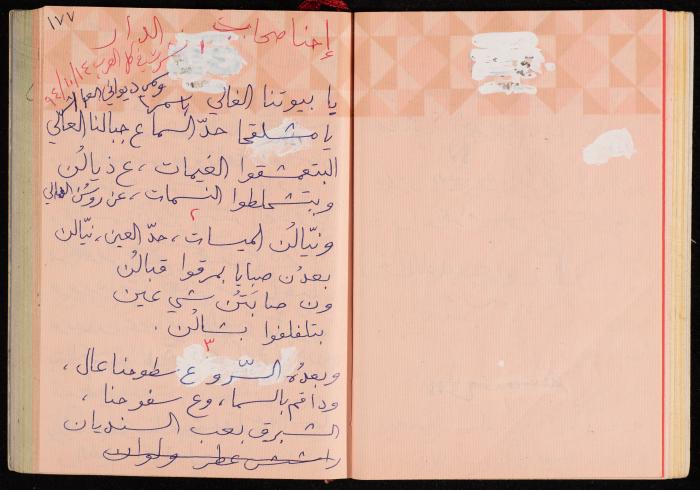 ١٧٧
إحنا صحاب الدار
١
نشرت في كل العرب ٩٤/١١/١٤
ومن ديواني
يا بيوتنا الغالي باسمها
يا مشلقحا حدّ السما ع جبالنا العالي
البتعمشقوا الغيمات، ع ذيالُن
وبتشحلطوا النسمات، عن روسُن العالي
٢
ونيّالُن الميسات، حدّ العين، نيّالن
بعدُن صبايا بمرقوا قبالُن
ون صابَتُن شي عين
بتلفلفوا بشالُن.
٣
وبعدُه السّرو ع سطوحنا عال،
ودافم بالسما، وع سفوحنا،
الشبرق بعب السنديان
رشش عطر ولوان